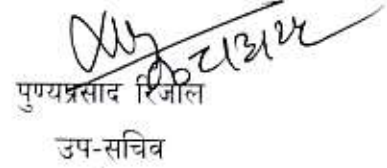 पुण्यप्रसाद रिजाल
उप-सचिव